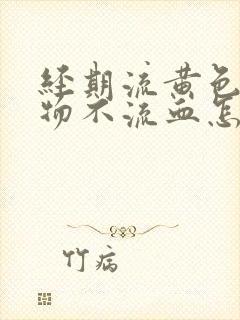 经期流黄色
物不流血怎
竹病